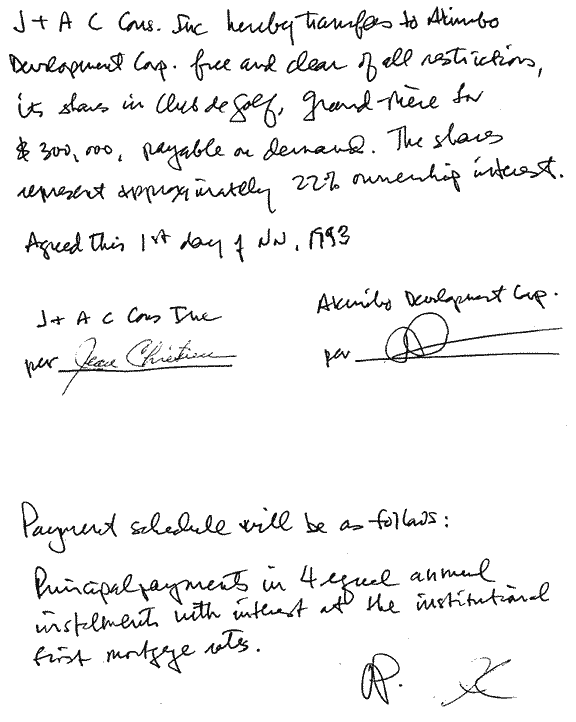 J + A C Cons. Inc hereby transfers to Akimbo
Development Corp. free and clear of all restrictions,
its shares in Club de Golf, Grand-Mère for
$300,000, payable on demand. The shares
represent approximately 22% ownership interest.
Agreed this 1st day of Nov, 1993
J + A C Cons Inc
per Jean Chrétien
Akimbo Development Corp.
per
Payment schedule will be as follows:
Principal payments in 4 equal annual
instalments with interest at the institutional
first mortgage rates.